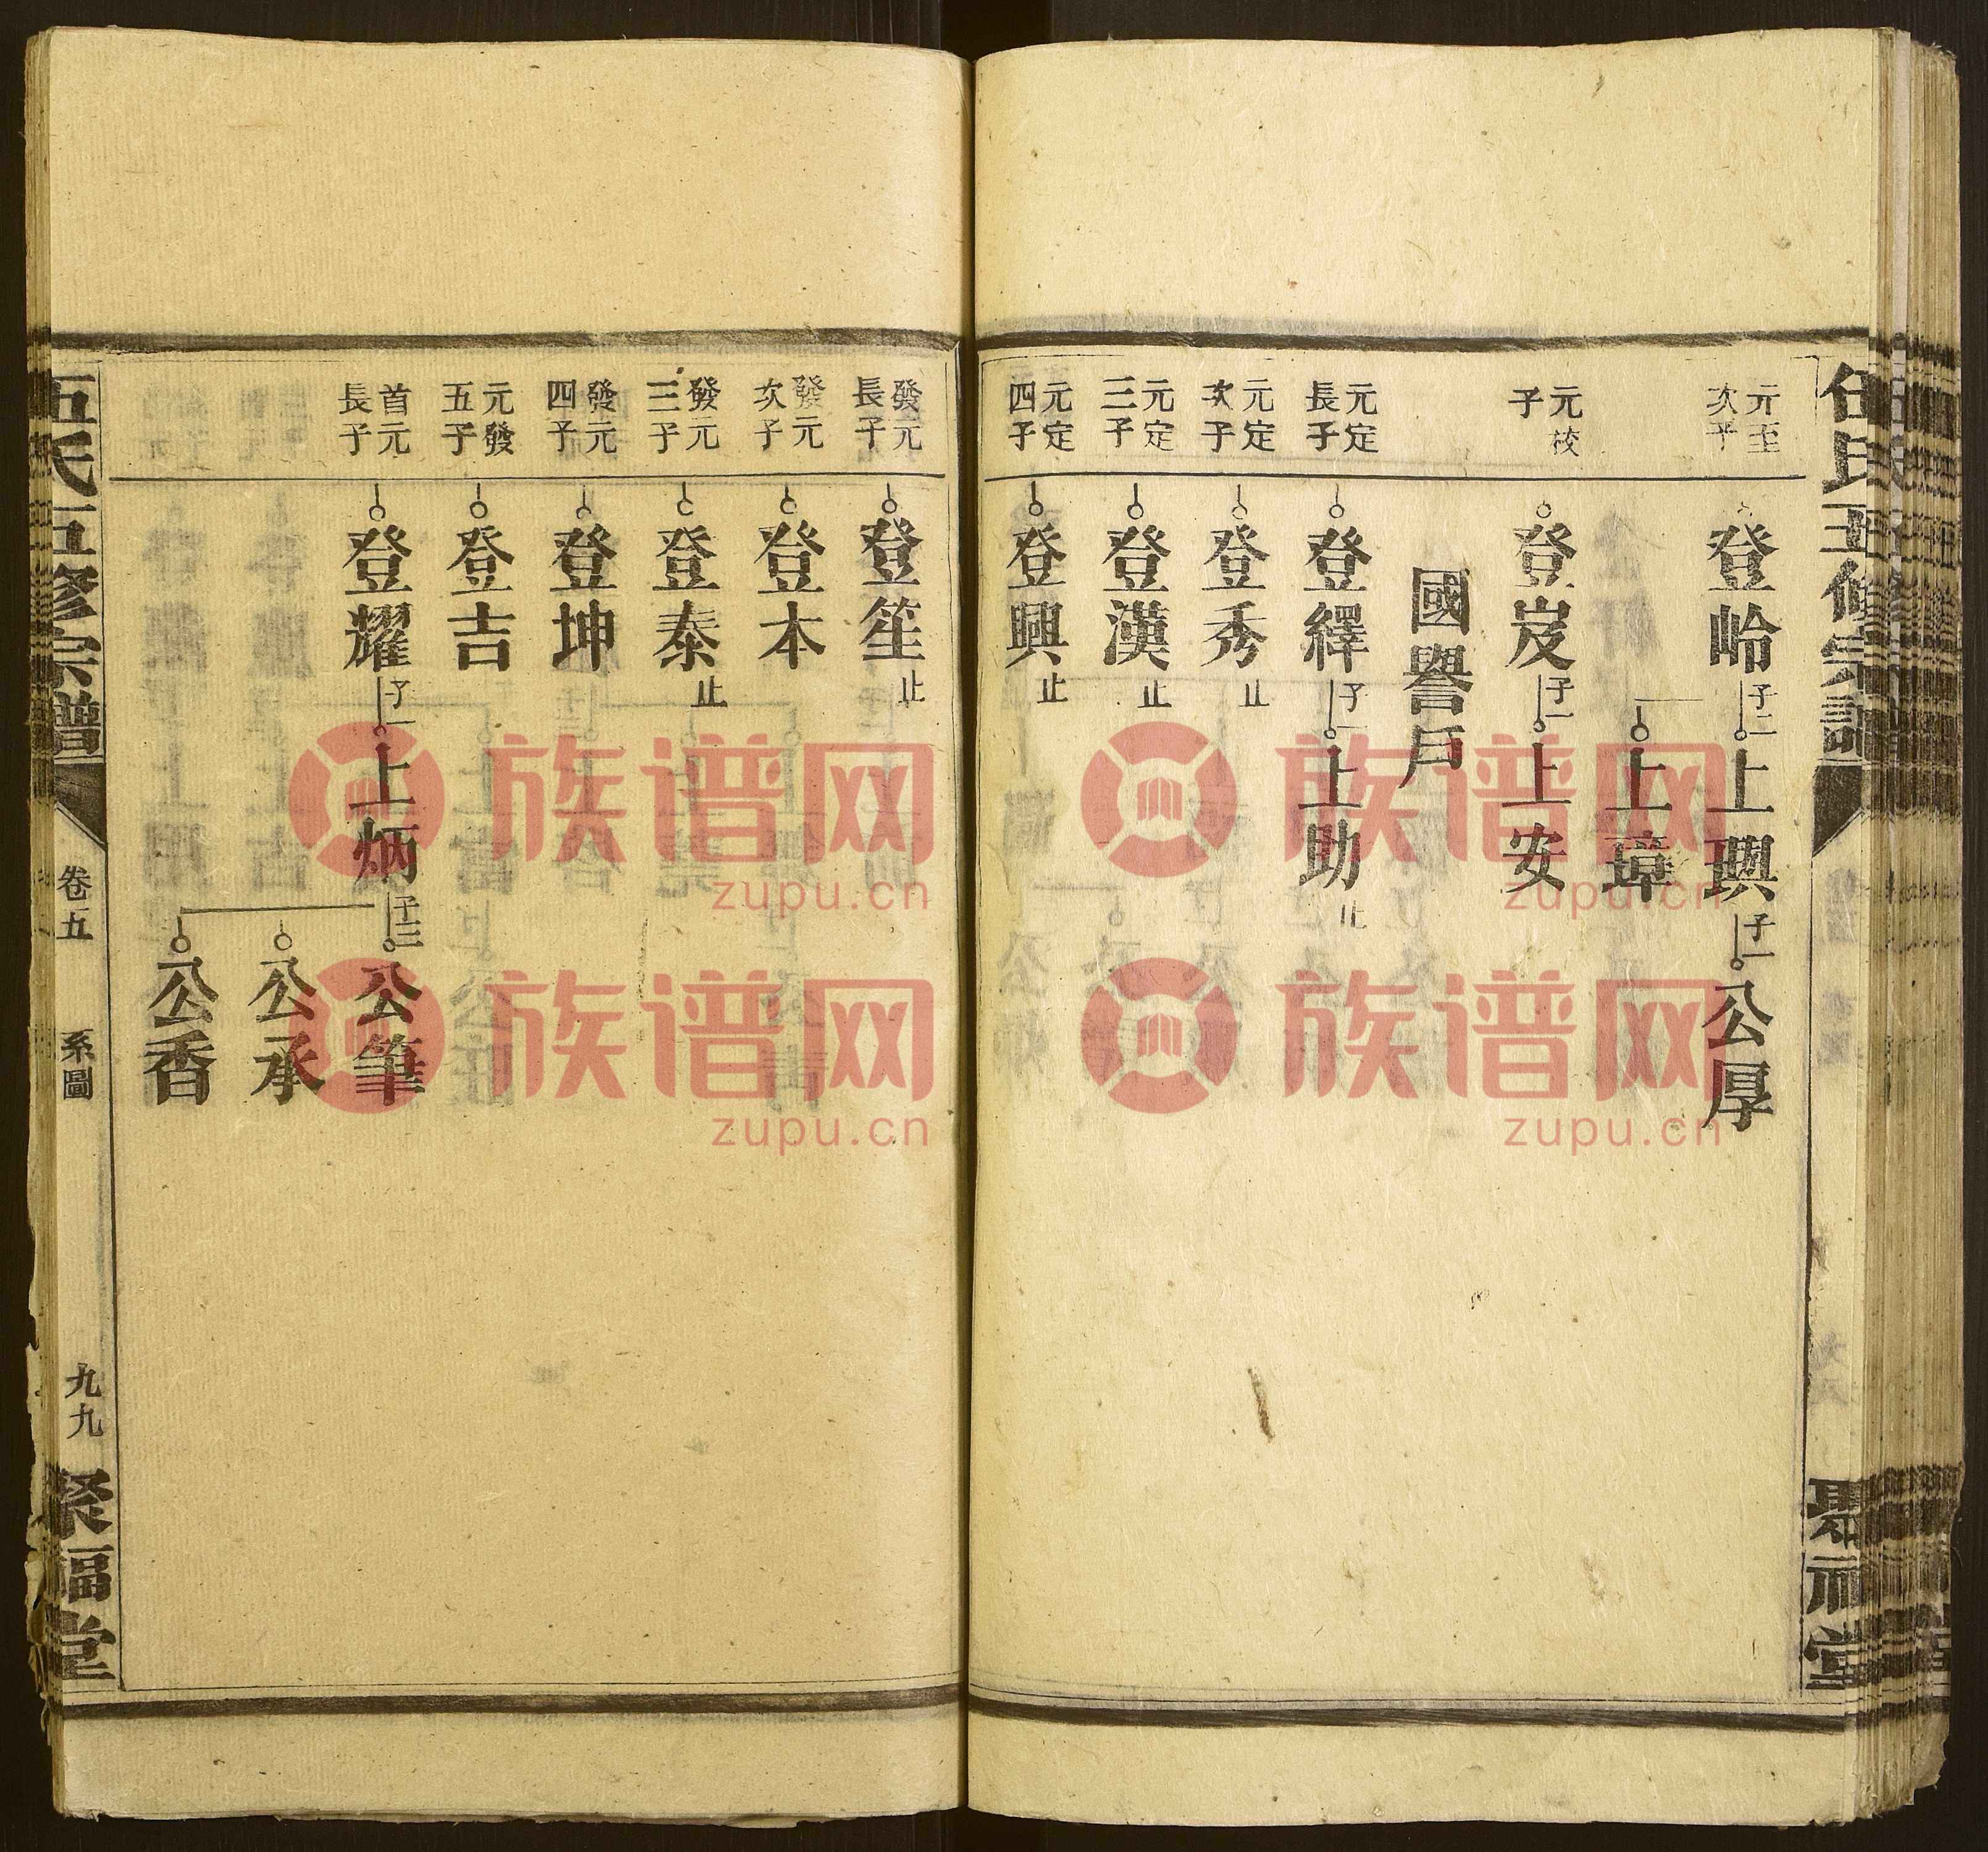 伍氏五修宗譜
聚福堂
元至次子
登岭
子二
上璵
子一
公厚
上璋
元校子
登岌
子一
上安
國譽戶
元定長子
登繹
子一
上助
止
元定次子
登秀
止
元定三子
登漢
止
元定四子
登興
止
發元長子
登笙
止
發元次子
登本
發元三子
登泰
止
發元四子
登坤
元發五子
登吉
首元長子
登耀
子一
上炳
子三
公筆
公承
公香
伍氏五修宗譜
卷五
系圖
九九
聚福堂
族谱网
zupu.cn
族谱网
zupu.cn
族谱网
zupu.cn
族谱网
zupu.cn